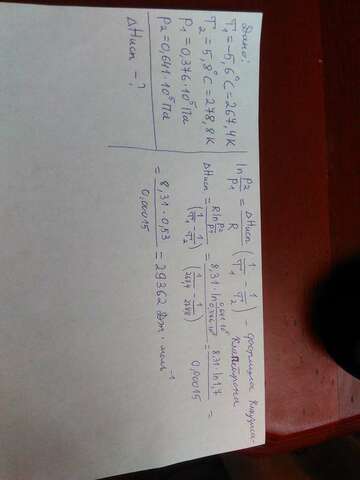 Дано:
T₁ = -5,6°C = 267,4 К
T₂ = 5,8°C = 278,8 К
P₁ = 0,376·10⁵ Па
P₂ = 0,641·10⁵ Па
ΔHисп - ?
ln P₂/P₁ = ΔHисп/R (1/T₁ - 1/T₂) - формула Клаузиса-Клапейрона
ΔHисп = R ln P₂/P₁ / (1/T₁ - 1/T₂) = 8,31 · ln / 0,00015 = 8,31 · ln 1,7 / 0,00015 =
= 8,31 · 0,53 / 0,00015 = 29362 Дж · моль⁻¹